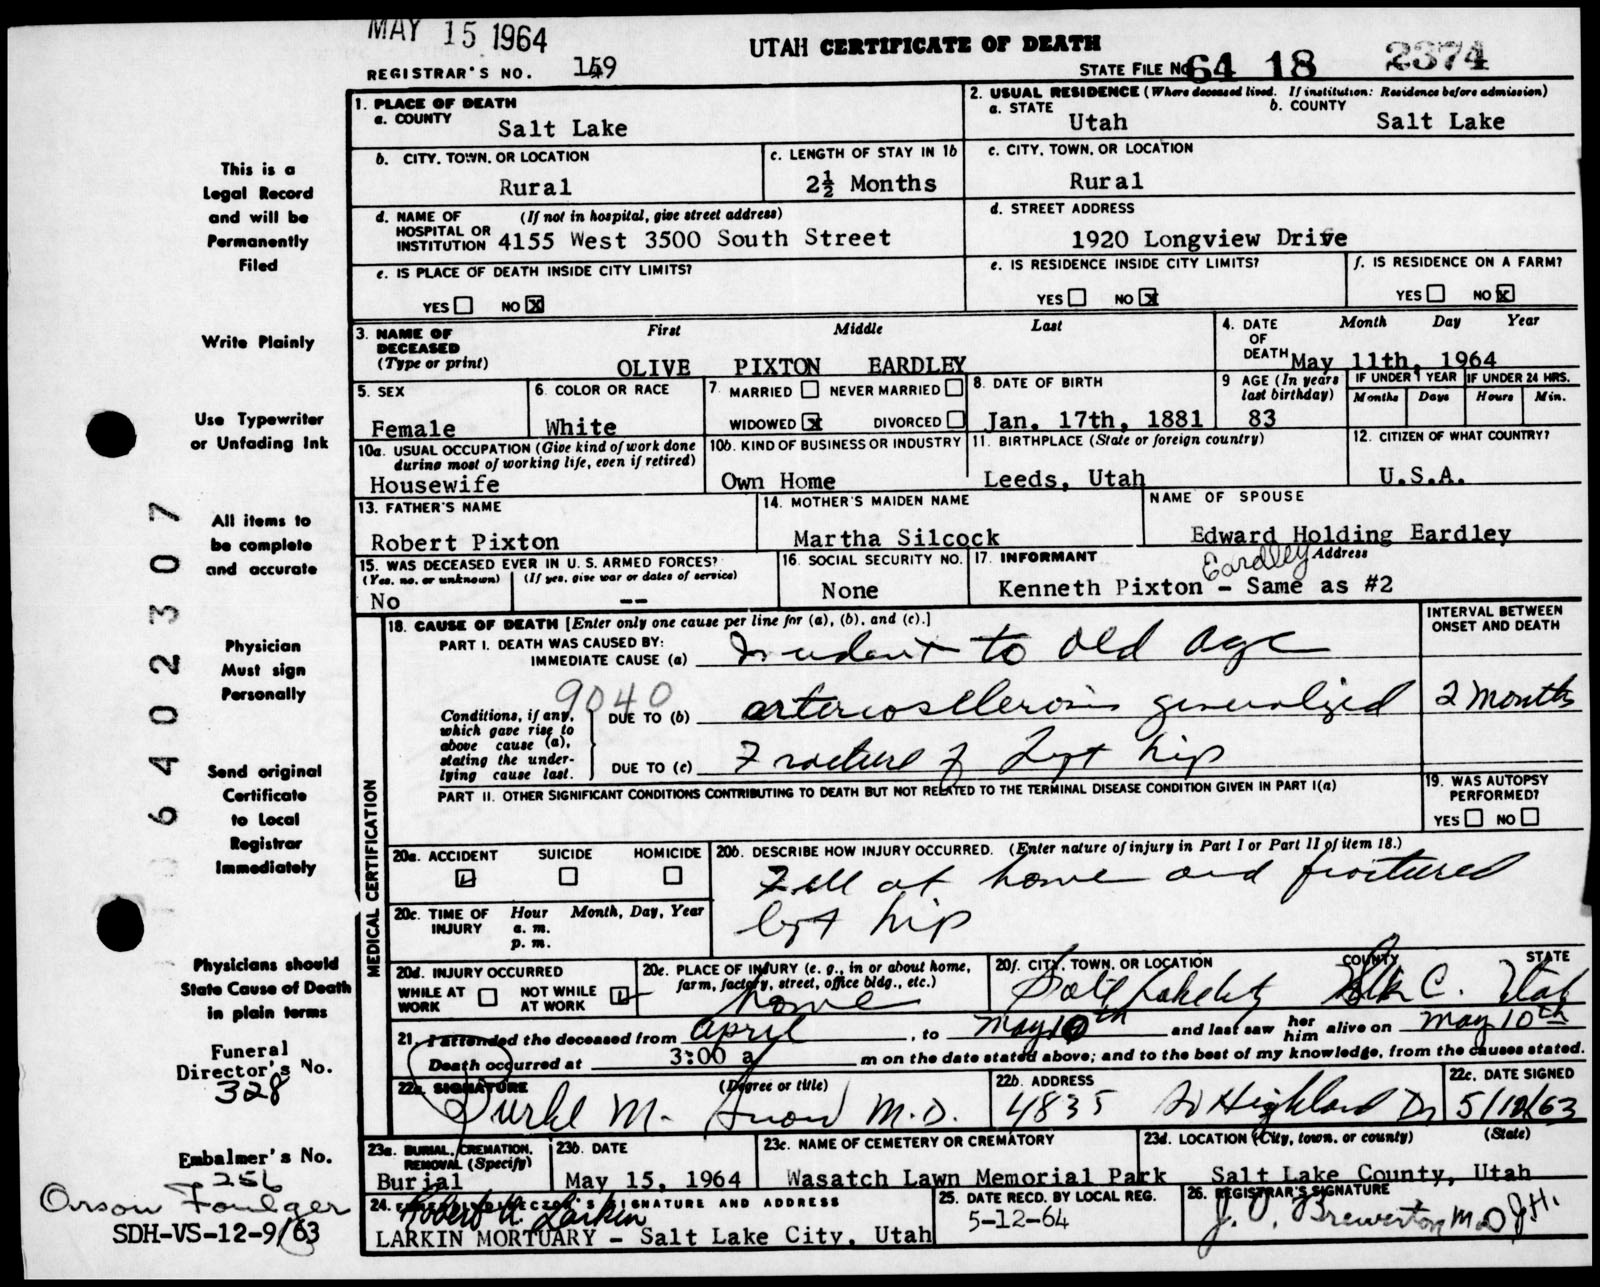 MAY 15 1964
UTAH CERTIFICATE OF DEATH
REGISTRAR'S NO. 159
STATE FILE NO. 64 18 2374
1. PLACE OF DEATH
a. COUNTY
Salt Lake
2. USUAL RESIDENCE (Where deceased lived. If institution: Residence before admission)
a. STATE
Utah
b. COUNTY
Salt Lake
b. CITY, TOWN, OR LOCATION
Rural
c. LENGTH OF STAY IN 1b
2½ Months
c. CITY, TOWN, OR LOCATION
Rural
d. NAME OF HOSPITAL OR INSTITUTION (If not in hospital, give street address)
4155 West 3500 South Street
d. STREET ADDRESS
1920 Longview Drive
e. IS PLACE OF DEATH INSIDE CITY LIMITS?
YES NO X
e. IS RESIDENCE INSIDE CITY LIMITS?
YES NO X
f. IS RESIDENCE ON A FARM?
YES NO X
3. NAME OF DECEASED (Type or print)
First Middle Last
OLIVE PIXTON EARDLEY
4. DATE OF DEATH
Month Day Year
May 11th, 1964
5. SEX
Female
6. COLOR OR RACE
White
7. MARRIED NEVER MARRIED
WIDOWED X DIVORCED
8. DATE OF BIRTH
Jan. 17th, 1881
9 AGE (In years last birthday)
83
IF UNDER 1 YEAR
Months Days
IF UNDER 24 HRS.
Hours Min.
10a. USUAL OCCUPATION (Give kind of work done during most of working life, even if retired)
Housewife
10b. KIND OF BUSINESS OR INDUSTRY
Own Home
11. BIRTHPLACE (State or foreign country)
Leeds, Utah
12. CITIZEN OF WHAT COUNTRY?
U.S.A.
13. FATHER'S NAME
Robert Pixton
14. MOTHER'S MAIDEN NAME
Martha Silcock
NAME OF SPOUSE
Edward Holding Eardley
15. WAS DECEASED EVER IN U. S. ARMED FORCES?
(Yes, no, or unknown) (If yes, give war or dates of service)
No --
16. SOCIAL SECURITY NO.
None
17. INFORMANT Address
Eardley
Kenneth Pixton - Same as #2
18. CAUSE OF DEATH [Enter only one cause per line for (a), (b), and (c).]
INTERVAL BETWEEN ONSET AND DEATH
PART I. DEATH WAS CAUSED BY:
IMMEDIATE CAUSE (a) Incident to old age
9040
Conditions, if any, which gave rise to above cause (a), stating the underlying cause last.
DUE TO (b) arteriosclerosis generalized 2 months
DUE TO (c) Fracture of Left hip
PART II. OTHER SIGNIFICANT CONDITIONS CONTRIBUTING TO DEATH BUT NOT RELATED TO THE TERMINAL DISEASE CONDITION GIVEN IN PART I(a)
19. WAS AUTOPSY PERFORMED?
YES NO
MEDICAL CERTIFICATION
20a. ACCIDENT SUICIDE HOMICIDE
20b. DESCRIBE HOW INJURY OCCURRED. (Enter nature of injury in Part I or Part II of item 18.)
Fell at home and fractured
left hip
20c. TIME OF INJURY
Hour Month, Day, Year
a. m.
p. m.
20d. INJURY OCCURRED
WHILE AT WORK NOT WHILE AT WORK
20e. PLACE OF INJURY (e. g., in or about home, farm, factory, street, office bldg., etc.)
home
20f. CITY, TOWN, OR LOCATION COUNTY STATE
Salt Lake City Utah
21. I attended the deceased from April, to May 10th and last saw her him alive on May 10th
Death occurred at 3:00 a m on the date stated above; and to the best of my knowledge, from the causes stated.
22a. SIGNATURE (Degree or title)
Burke M. Snow M.D.
22b. ADDRESS
4835 So Highland Dr
22c. DATE SIGNED
5/12/63
23a. BURIAL, CREMATION, REMOVAL (Specify)
Burial
23b. DATE
May 15, 1964
23c. NAME OF CEMETERY OR CREMATORY
Wasatch Lawn Memorial Park
23d. LOCATION (City, town, or county) (State)
Salt Lake County, Utah
24. SIGNATURE AND ADDRESS
Robert W. Larkin
LARKIN MORTUARY - Salt Lake City, Utah
25. DATE RECD. BY LOCAL REG.
5-12-64
26. REGISTRAR'S SIGNATURE
Brewerton M D J.H.
This is a
Legal Record
and will be
Permanently
Filed
Write Plainly
Use Typewriter
or Unfading Ink
All items to
be complete
and accurate
Physician
Must sign
Personally
Send original
Certificate
to Local
Registrar
Immediately
6402307
Physicians should
State Cause of Death
in plain terms
Funeral
Director's No.
328
Embalmer's No.
256
Orson Foulger
SDH-VS-12-9/63